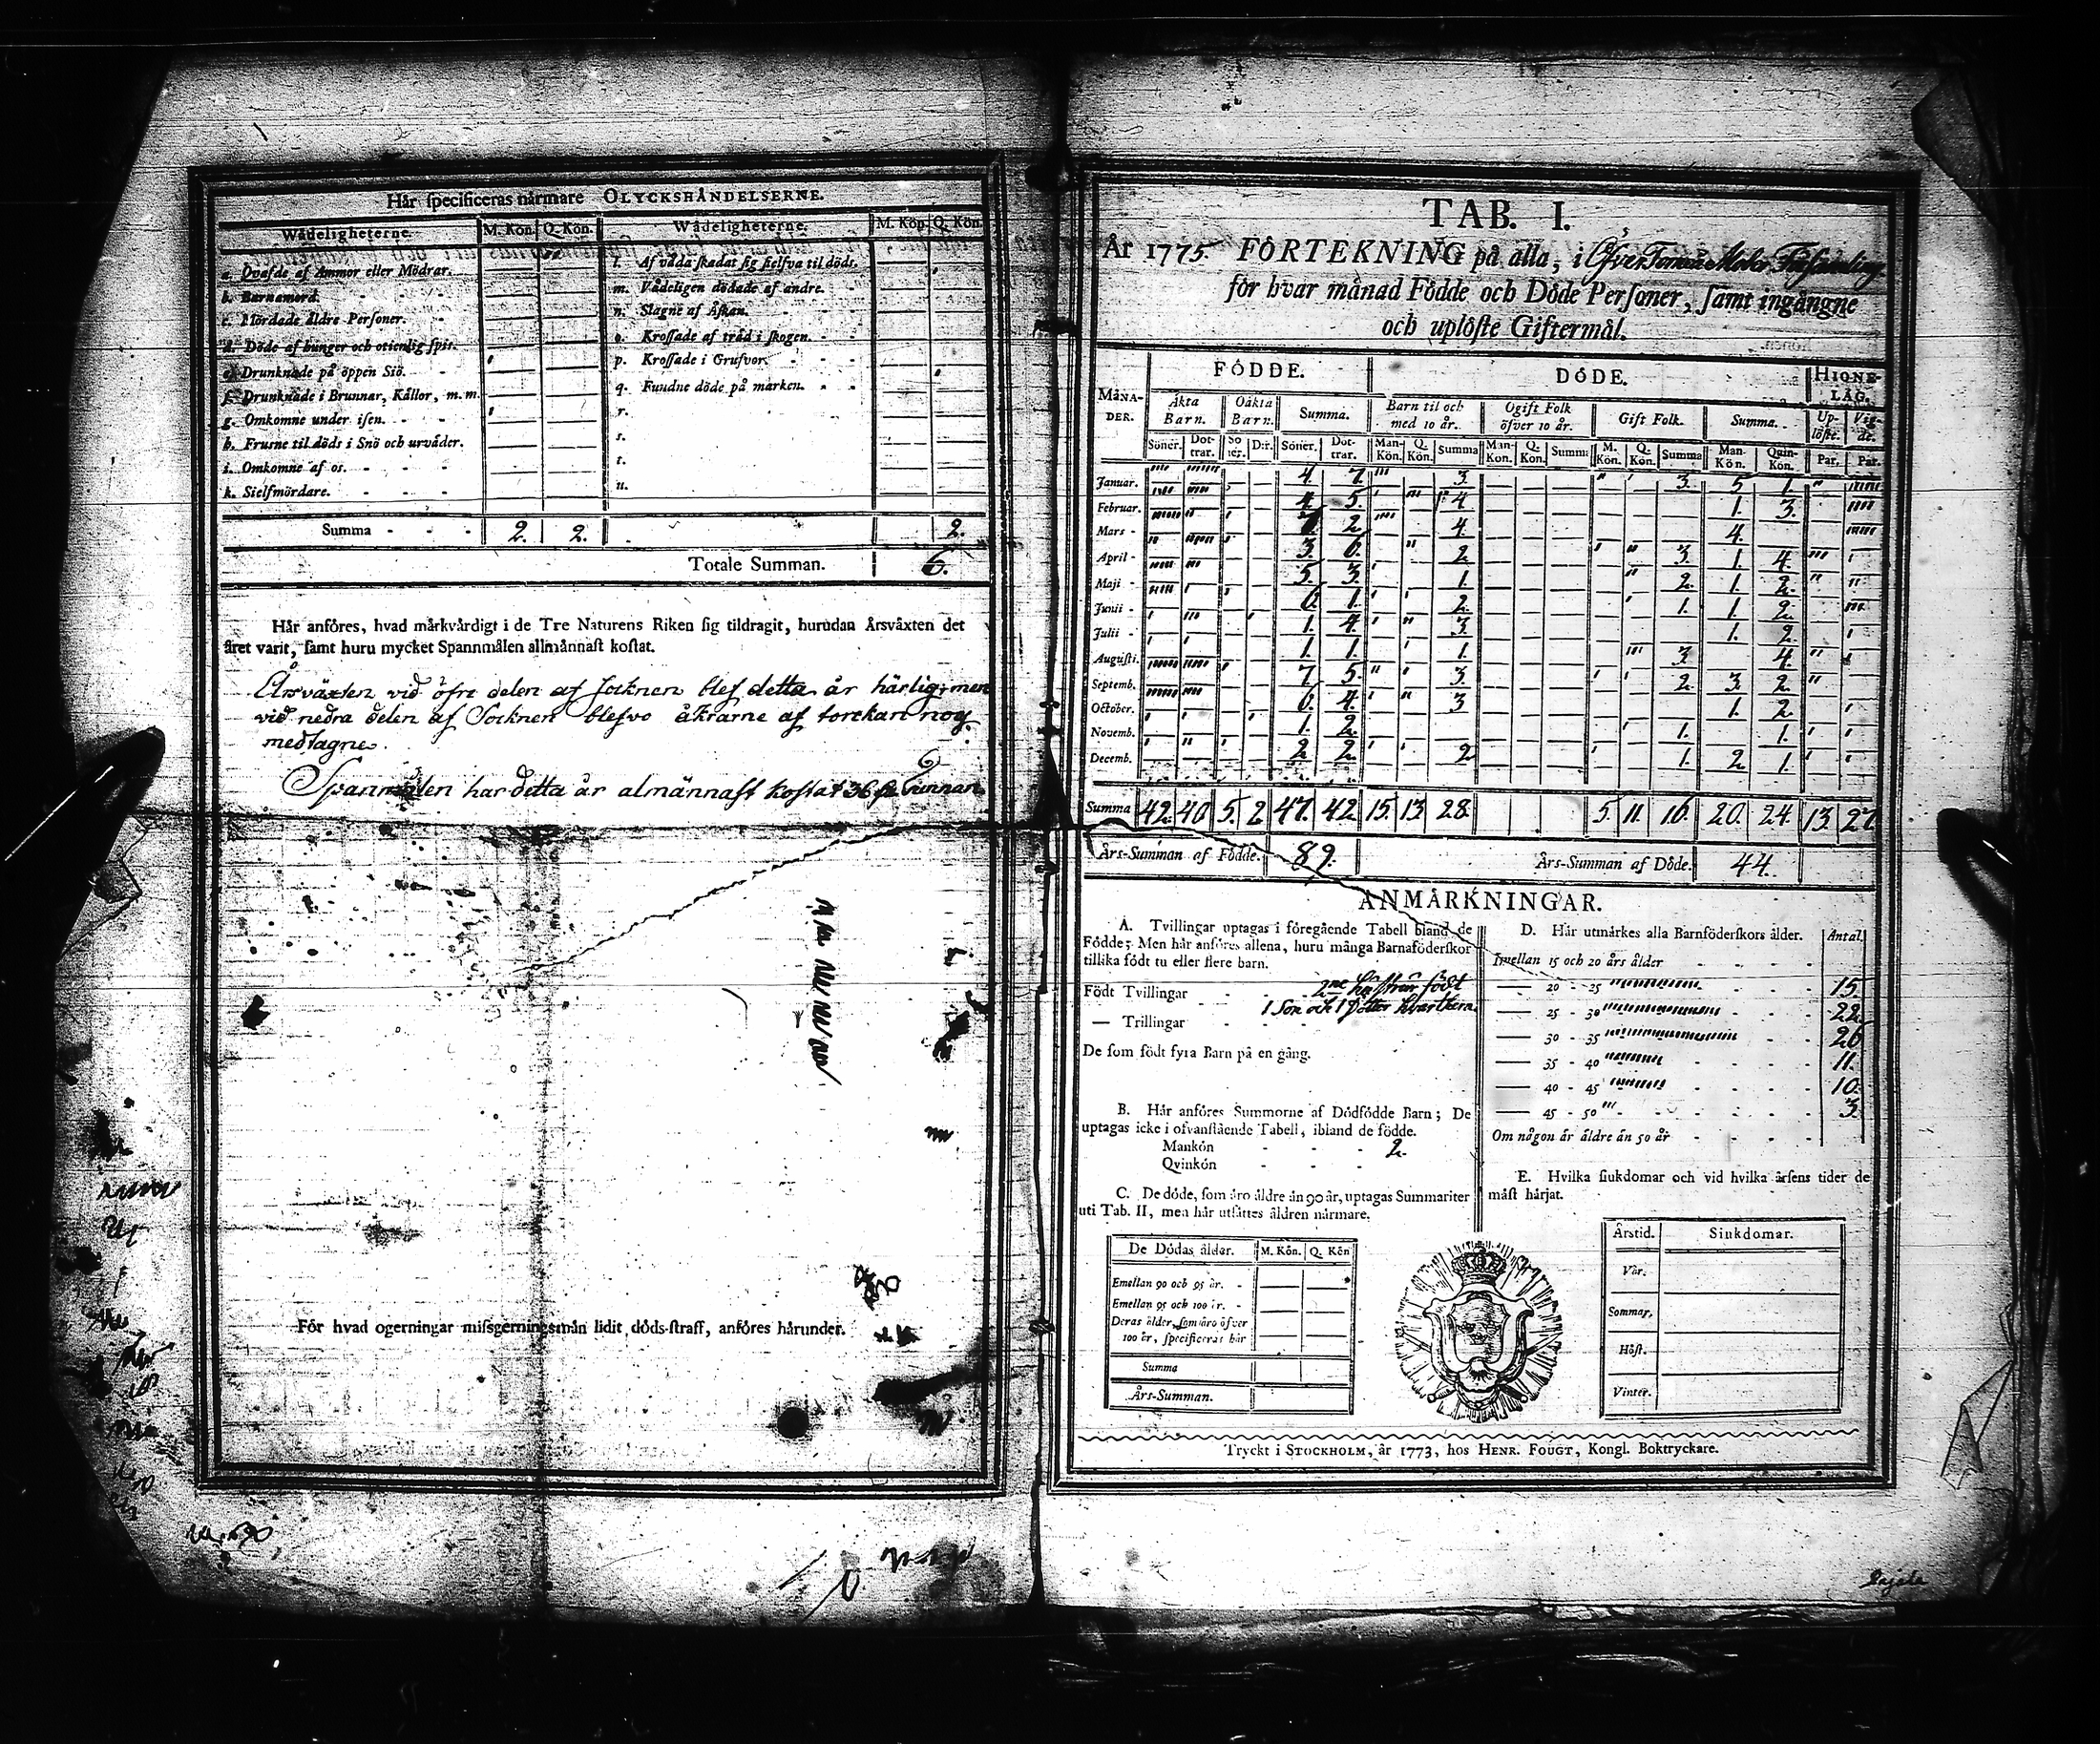 Hår specificeras närmare OLYCKSHÅNDELSERNE.
Wådeligheterne. M. Kön. Q. Kön. Wådeligheterne. M. Kön. Q. Kön.
a. Qvafde af Ammor eller Mödrar. l. Af våda skadat sig sielfva til döds.
b. Barnamord. m. Vådeligen dödade af andre.
c. Mördade äldre Personer. n. Slagne af Åskan.
d. Döde af hunger och otienlig spis. o. Krossade af träd i skogen.
e. Drunknade på öppen Siö. p. Krossade i Grufvor.
f. Drunknade i Brunnar, Källor, m. m. q. Fundne döde på marken.
g. Omkomne under isen. r.
h. Frusne til döds i Snö och urväder. s.
i. Omkomne af os. t.
k. Sielfmördare. u.
Summa 2. 2. 2.
Totale Summan. 6.
Hår anföres, hvad mårkvårdigt i de Tre Naturens Riken sig tildragit, hurudan Årsvåxten det
året varit, samt huru mycket Spannmålen allmånnast kostat.
Årsväxten vid öfre delen af Socknen blef detta år härlig, men
vid nedra delen af Socknen blefvo åkrarne af torckan nog
medtagne.
Spannmålen har detta år almännast kostat 36 Tunnan
För hvad ogerningar missgerningsmån lidit döds-straff, anföres hårunder.
TAB. I.
År 1775. FÖRTEKNING på alla, i Öfver Torneå Moder Församling
för hvar månad Födde och Döde Personer, samt ingångne
och uplöste Giftermål.
MÅNA-DER. FÖDDE. DÖDE. HIONE-LAG.
Åkta Barn. Oåkta Barn. Summa. Barn til och med 10 år. Ogift Folk öfver 10 år. Gift Folk. Summa. Up-löste. Vig-de.
Söner. Dot-trar. Sö-ner. D:r. Söner. Dot-trar. Man-Kön. Q. Kön. Summa Man-Kön. Q. Kön. Summa M. Kön. Q. Kön. Summa Man-Kön. Quin-Kön. Par. Par.
Januar. 4. 7. 3. 3. 5. 1.
Februar. 4. 5. 4 1. 3.
Mars 2. 4. 4.
April 3. 6. 2. 3. 1. 4.
Maji 5. 3. 1. 2. 1. 2.
Junii 6. 1. 2. 1. 1. 2.
Julii 1. 4. 3. 1. 2.
Augusti. 1. 1. 1. 3. 4.
Septemb. 7. 5. 3 2. 3. 2.
October. 6. 4. 3 1. 2
Novemb. 1. 2. 1. 1.
Decemb. 2. 2. 2. 1. 2. 1.
Summa 42. 40 5. 2 47. 42. 15. 13. 28. 5. 11. 16. 20. 24. 13. 27.
Års-Summan af Födde. 89. Års-Summan af Döde. 44.
ANMÅRKNINGAR.
A. Tvillingar uptagas i föregående Tabell bland de
Födde; Men hår anföres allena, huru många Barnaföderskor
tillika födt tu eller flere barn.
Födt Tvillingar 2ne hustrur födt
1 Son och 1 Dotter hvarthera.
— Trillingar
De som födt fyra Barn på en gång.
B. Hår anföres Summorne af Dödfödde Barn; De
uptagas icke i ofvanstående Tabell, ibland de födde.
Mankön 2.
Qvinkön
C. De döde, som åro åldre ån 90 år, uptagas Summariter
uti Tab. II, men hår utsåttes åldren nårmare.
De Dödas ålder. M. Kön. Q. Kön
Emellan 90 och 95 år.
Emellan 95 och 100 år.
Deras ålder, som åro öfver
100 år, specificeras hår
Summa
Års-Summan.
D. Hår utmårkes alla Barnföderskors ålder. Antal.
Imellan 15 och 20 års ålder
— 20 - 25 15.
— 25 - 30 22.
— 30 - 35 26
— 35 - 40 11.
— 40 - 45 10.
— 45 - 50 3.
Om någon år åldre ån 50 år
E. Hvilka siukdomar och vid hvilka årsens tider de
måst hårjat.
Årstid. Siukdomar.
Vår.
Sommar.
Höst.
Vinter.
Tryckt i STOCKHOLM, år 1773, hos HENR. FOUGT, Kongl. Boktryckare.